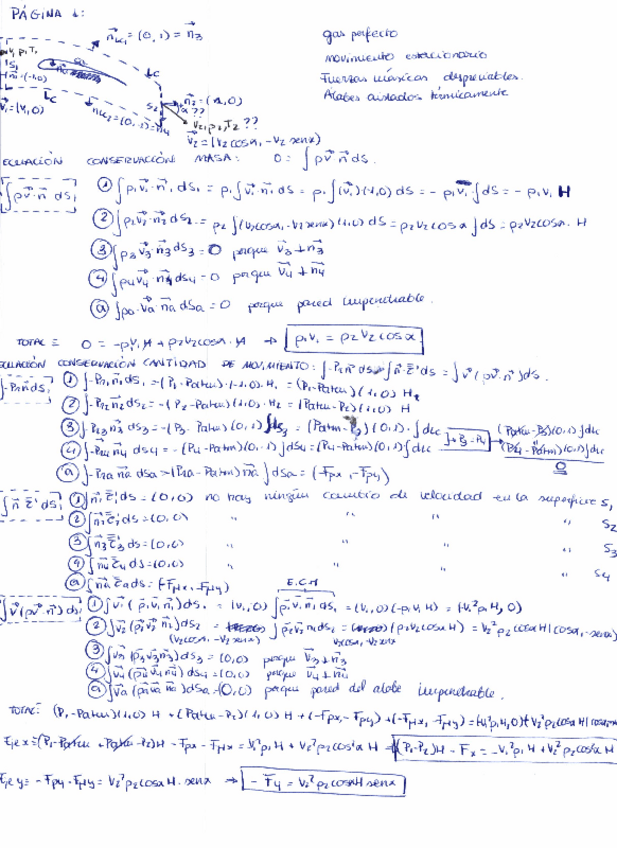 PÁGINA 1:
n⃗Lc1 = (0,1) = n⃗3
gas perfecto
movimiento estacionario
Fuerzas másicas despreciables.
Álabes aislados térmicamente
v1, p1, T1
S1
Lc
n⃗1 = (-1,0)
S2
n⃗2 = (1,0)
α ??
v⃗1 = (v1,0)
Lc
n⃗Lc2 = (0,-1) = n⃗4
v2, p2, T2 ??
v⃗2 = (v2 cosα, -v2 senα)
ECUACIÓN CONSERVACIÓN MASA: 0 = ∫ρv⃗·n⃗ dS.
∫ρv⃗·n⃗ dSi
① ∫ρ1v⃗1·n⃗1 dS1 = ρ1∫v⃗1·n⃗1 dS = ρ1∫(v⃗1)(-1,0) dS = -ρ1v1∫dS = -ρ1v1 H
② ∫ρ2v⃗2·n⃗2 dS2 = ρ2∫(v2cosα, -v2 senα)(1,0) dS = ρ2v2cosα∫dS = ρ2v2cosα·H
③ ∫ρ3v⃗3·n⃗3 dS3 = 0 porque v⃗3 ⊥ n⃗3
④ ∫ρ4v⃗4·n⃗4 dS4 = 0 porque v⃗4 ⊥ n⃗4
ⓐ ∫ρa·v⃗a·n⃗a dSa = 0 porque pared impenetrable.
TOTAL = 0 = -ρ1v1H + ρ2v2cosα·H → ρ1v1 = ρ2v2 cosα
ECUACIÓN CONSERVACIÓN CANTIDAD DE MOVIMIENTO: ∫-Pr n⃗ dS + ∫n⃗·τ̿' dS = ∫v⃗(ρv⃗·n⃗) dS.
∫-Pr n⃗ dSi
① ∫-Pr1 n⃗1 dS1 = -(P1-Patm)·(-1,0)·H = (P1-Patm)(1,0) H
② ∫-Pr2 n⃗2 dS2 = -(P2-Patm)(1,0)·H2 = (Patm-P2)(1,0) H
③ ∫-Pr3 n⃗3 dS3 = -(P3-Patm)(0,1)∫dS3 = (Patm-P3)(0,1)·∫dLc
④ ∫-Pr4 n⃗4 dS4 = -(P4-Patm)(0,-1)∫dS4 = (P4-Patm)(0,1)∫dLc
P3 = P4
(Patm-P3)(0,1)∫dLc
(P4-Patm)(0,1)∫dLc
0
ⓐ ∫-Pra n⃗a dSa = -(Pa-Patm) n⃗a ∫dSa = (-Fpx, -Fpy)
∫n⃗ τ̿' dSi
① ∫n⃗1 τ̿'1 dS = (0,0) no hay ningún cambio de velocidad en la superficie S1
② ∫n⃗2 τ̿'2 dS = (0,0) " " " S2
③ ∫n⃗3 τ̿'3 dS = (0,0) " " " S3
④ ∫n⃗4 τ̿'4 dS = (0,0) " " " S4
ⓐ ∫n⃗a τ̿a dS = (-Fμx, -Fμy)
E.C.M
∫v⃗(ρv⃗·n⃗) dSi
① ∫v⃗1(ρ1v⃗1n⃗1) dS1 = (v1,0)∫ρ1v⃗1n⃗1 dS1 = (v1,0)(-ρ1v1H) = (-v1²ρ1H, 0)
② ∫v⃗2(ρ2v⃗2n⃗2) dS2 = (v2cosα, -v2 senα)∫ρ2v⃗2n⃗2 dS2 = (v2cosα, -v2 senα)(ρ2v2cosαH) = v2²ρ2cosαH(cosα, -senα)
③ ∫v⃗3(ρ3v⃗3n⃗3) dS3 = (0,0) porque v⃗3 ⊥ n⃗3
④ ∫v⃗4(ρ4v⃗4n⃗4) dS = (0,0) porque v⃗4 ⊥ n⃗4
ⓐ ∫v⃗a(ρav⃗a n⃗a) dSa = (0,0) porque pared del álabe impenetrable.
TOTAL: (P1-Patm)(1,0) H + (Patm-P2)(1,0) H + (-Fpx, -Fpy) + (-Fμx, -Fμy) = (-v1²ρ1H, 0) + v2²ρ2cosαH(cosα
Eje x = (P1-Patm + Patm-P2)H - Fpx - Fμx = -v1²ρ1H + v2²ρ2cos²αH → (P1-P2)H - Fx = -v1²ρ1H + v2²ρ2cos²αH
Eje y = -Fpy - Fμy = v2²ρ2cosαH·senα → -Fy = v2²ρ2cosαH senα